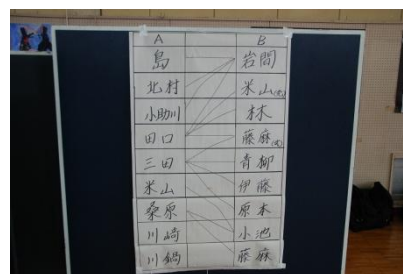 A B
島 岩間
北村 米山
小助川 林
田口 藤麻
三田 青柳
米山 伊藤
桑原 原本
川崎 小池
川鍋 藤麻